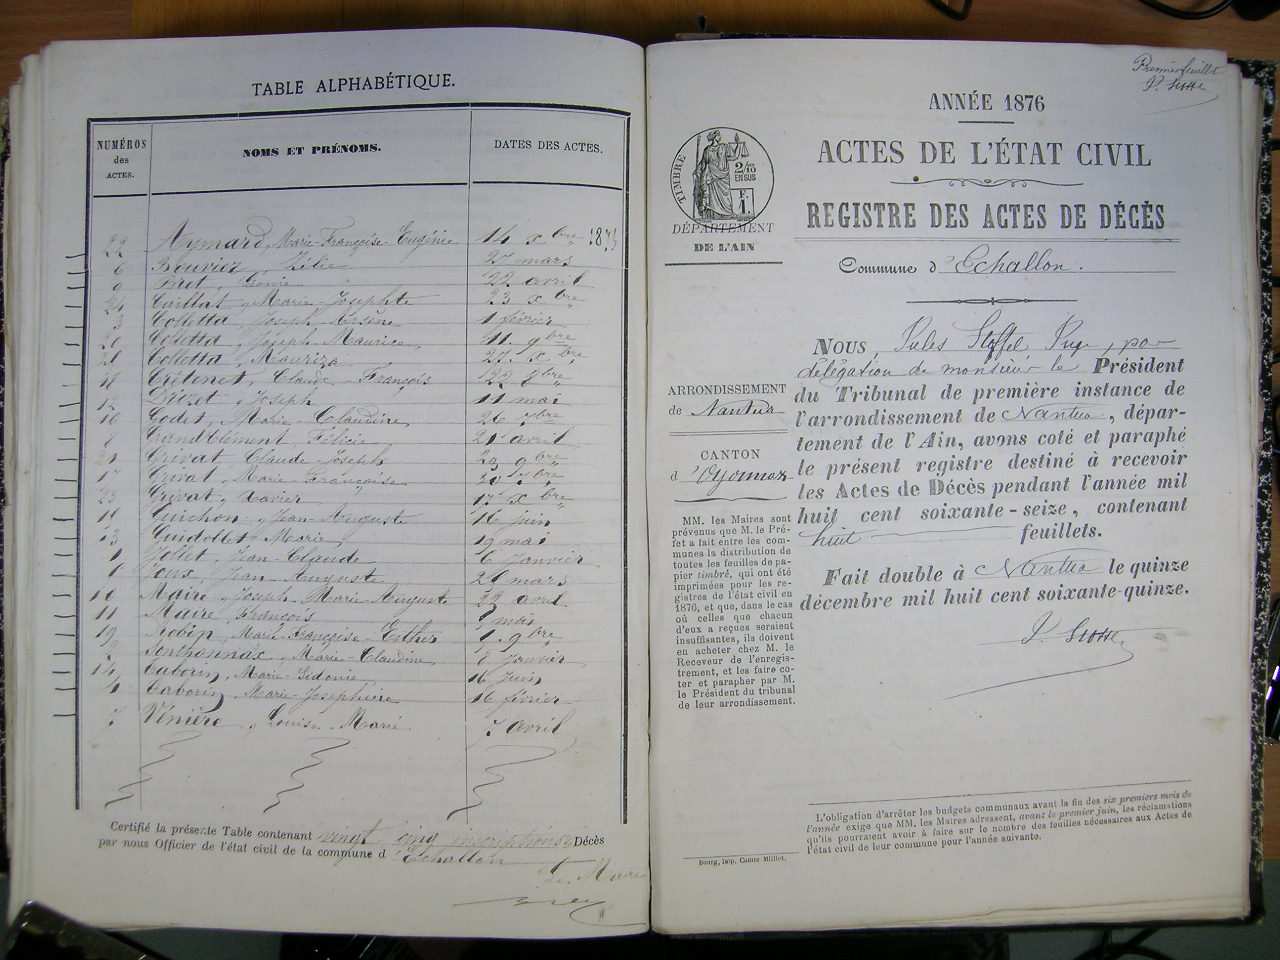 TABLE ALPHABÉTIQUE.
NUMÉROS des ACTES.
NOMS ET PRÉNOMS.
DATES DES ACTES.
22 Aymard, Marie-Françoise-Eugénie 14 xbre 1875
6 Bouvier, Zélie 27 mars
9 Bret, 22 avril
24 Caillat, Marie-Josephte 23 xbre
3 Colletta, Joseph Arsène 1 février
20 Colletta, Joseph-Maurice 11 9bre
Colletta, 27 xbre
18 Crétenet, Claude-François
12 Joseph 11 mai
16 Godet, Marie-Claudine 26
8 GrandClément, Félicie 21 avril
21 Grivat, Claude-Joseph 9bre
Grivat, Marie-Françoise
23 Grivat, Xavier 17 xbre
Guichon, Jean-Auguste 16 juin
13 Guidollet, Marie 19 mai
1 Jollet, Jean-Claude 6 janvier
Joux, Jean-Auguste mars
10 Maire, Joseph-Marie-Auguste 22 avril
11 Maire, François mai
19 Robin, Marie-Françoise-Esther 1 9bre
Marie-Claudine 8 janvier
14 Taborin, Marie-Sidonie 16 juin
4 Taborin, Marie-Joséphine 16 février
7 Vénière, Louise-Marie 7 avril
Certifié la présente Table contenant vingt cinq inscriptions Décès
par nous Officier de l'état civil de la commune d'Echallon
Le Maire
Premier feuillet
ANNÉE 1876
ACTES DE L'ÉTAT CIVIL
REGISTRE DES ACTES DE DÉCÈS
TIMBRE
2/10
EN SUS
F.
1
DÉPARTEMENT
DE L'AIN
Commune d'Echallon.
ARRONDISSEMENT
de Nantua
CANTON
d'Oyonnax
MM. les Maires sont
prévenus que M. le Pré-
fet a fait entre les com-
munes la distribution de
toutes les feuilles de pa-
pier timbré, qui ont été
imprimées pour les re-
gistres de l'état civil en
1876, et que, dans le cas
où celles que chacun
d'eux a reçues seraient
insuffisantes, ils doivent
en acheter chez M. le
Receveur de l'enregis-
trement, et les faire co-
ter et parapher par M.
le Président du tribunal
de leur arrondissement.
NOUS, Jules Juge, par
délégation de monsieur le Président
du Tribunal de première instance de
l'arrondissement de Nantua, dépar-
tement de l'Ain, avons coté et paraphé
le présent registre destiné à recevoir
les Actes de Décès pendant l'année mil
huit cent soixante-seize, contenant
huit feuillets.
Fait double à Nantua le quinze
décembre mil huit cent soixante-quinze.
L'obligation d'arrêter les budgets communaux avant la fin des six premiers mois de
l'année exige que MM. les Maires adressent, avant le premier juin, les réclamations
qu'ils pourraient avoir à faire sur le nombre des feuilles nécessaires aux Actes de
l'état civil de leur commune pour l'année suivante.
Bourg, Imp. Comte Milliet.